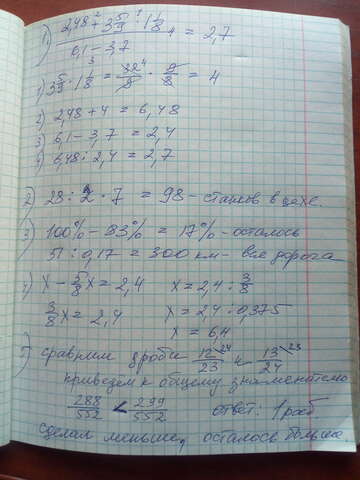 1) (2,48 + 3 5/9 · 1 1/8) / (6,1 - 3,7) = 2,7
1) 3 5/9 · 1 1/8 = 32/9 · 9/8 = 4
2) 2,48 + 4 = 6,48
3) 6,1 - 3,7 = 2,4
4) 6,48 : 2,4 = 2,7
2) 28 : 2 · 7 = 98 - станков в цехе.
3) 100% - 83% = 17% - осталось
51 : 0,17 = 300 км - вся дорога
4) x - 5/8 x = 2,4 x = 2,4 : 3/8
3/8 x = 2,4 x = 2,4 : 0,375
x = 6,4
5) сравним дроби 12/23 \24 и 13/24 \23
приведём к общему знаменателю
288/552 < 299/552 ответ: 1 раб.
сделал меньше, осталось больше.